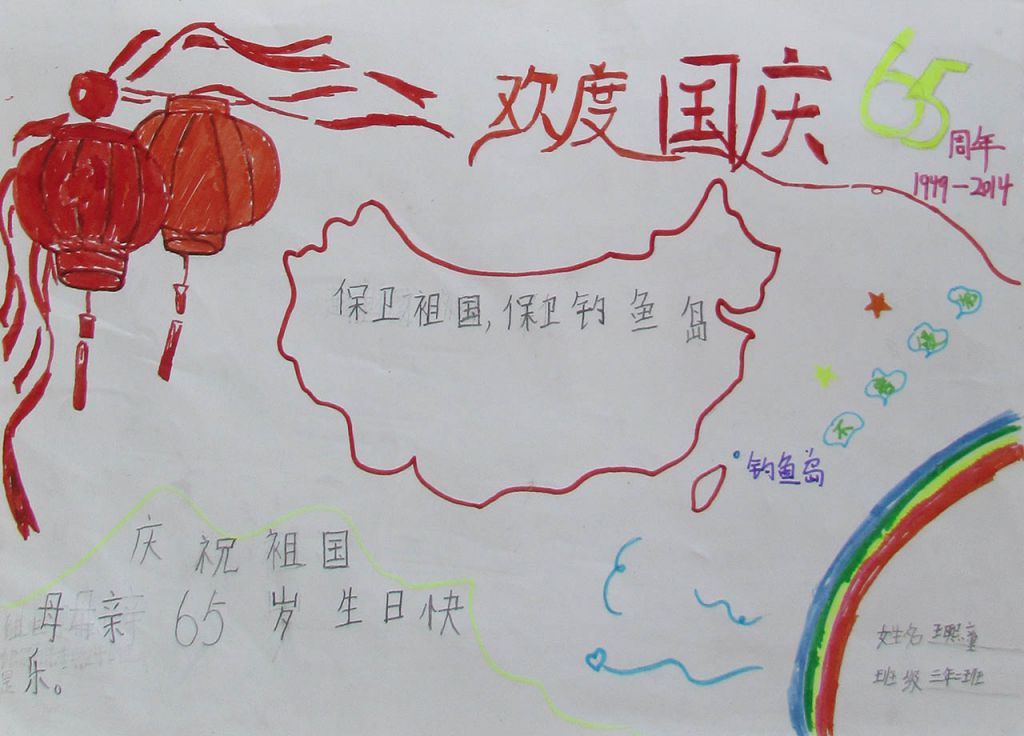 欢度国庆
65
周年
1949-2014
保卫祖国,保卫钓鱼岛
钓鱼岛
庆祝祖国
母亲65岁生日快
乐。
姓名 王熙童
班级 三年二班